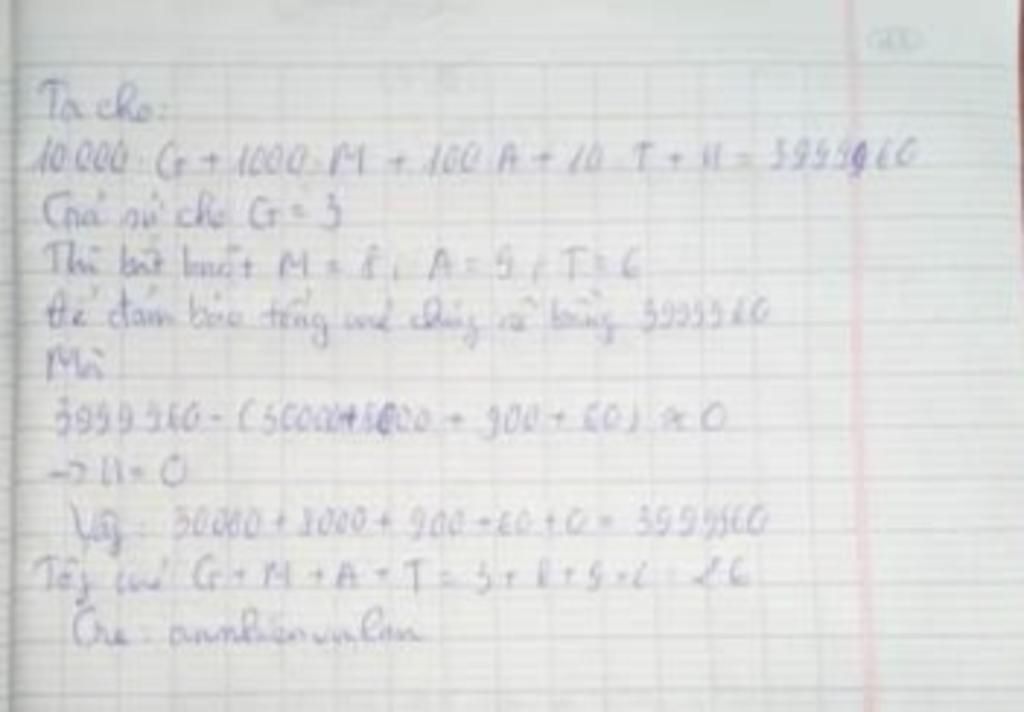 Ta cho:
10000 G + 1000 M + 100 A + 10 T + U = 3999960
Giả sử cho G = 3
Thì bắt buộc M = 8, A = 9, T = 6
để đảm bảo tổng của chúng sẽ bằng 3999960
Mà
3999960 - ( + 900 + 60) = 0
-> U = 0
Vậy: 30000 + 8000 + 900 + 60 + 0 = 3999960
G + M + A + T = 3 + 8 + 9 + 6 = 26
Cre: